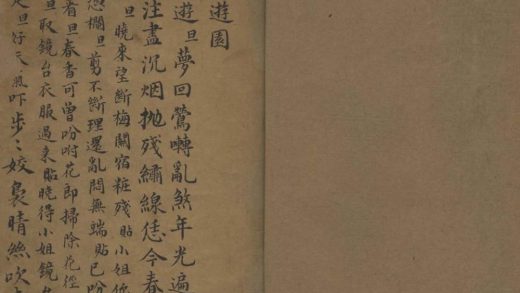 遊園
遊旦夢回鶯囀亂煞年光遍
注盡沉烟抛残繡線恁今春
旦曉來望斷梅關宿粧殘貼小姐你
凭欄旦剪不斷理還亂悶無端貼已吩
旦春香可曾吩咐花郎掃除花徑
旦取鏡台衣服過來貼曉得小姐鏡
旦好天氣吓步〻姣裊晴絲吹